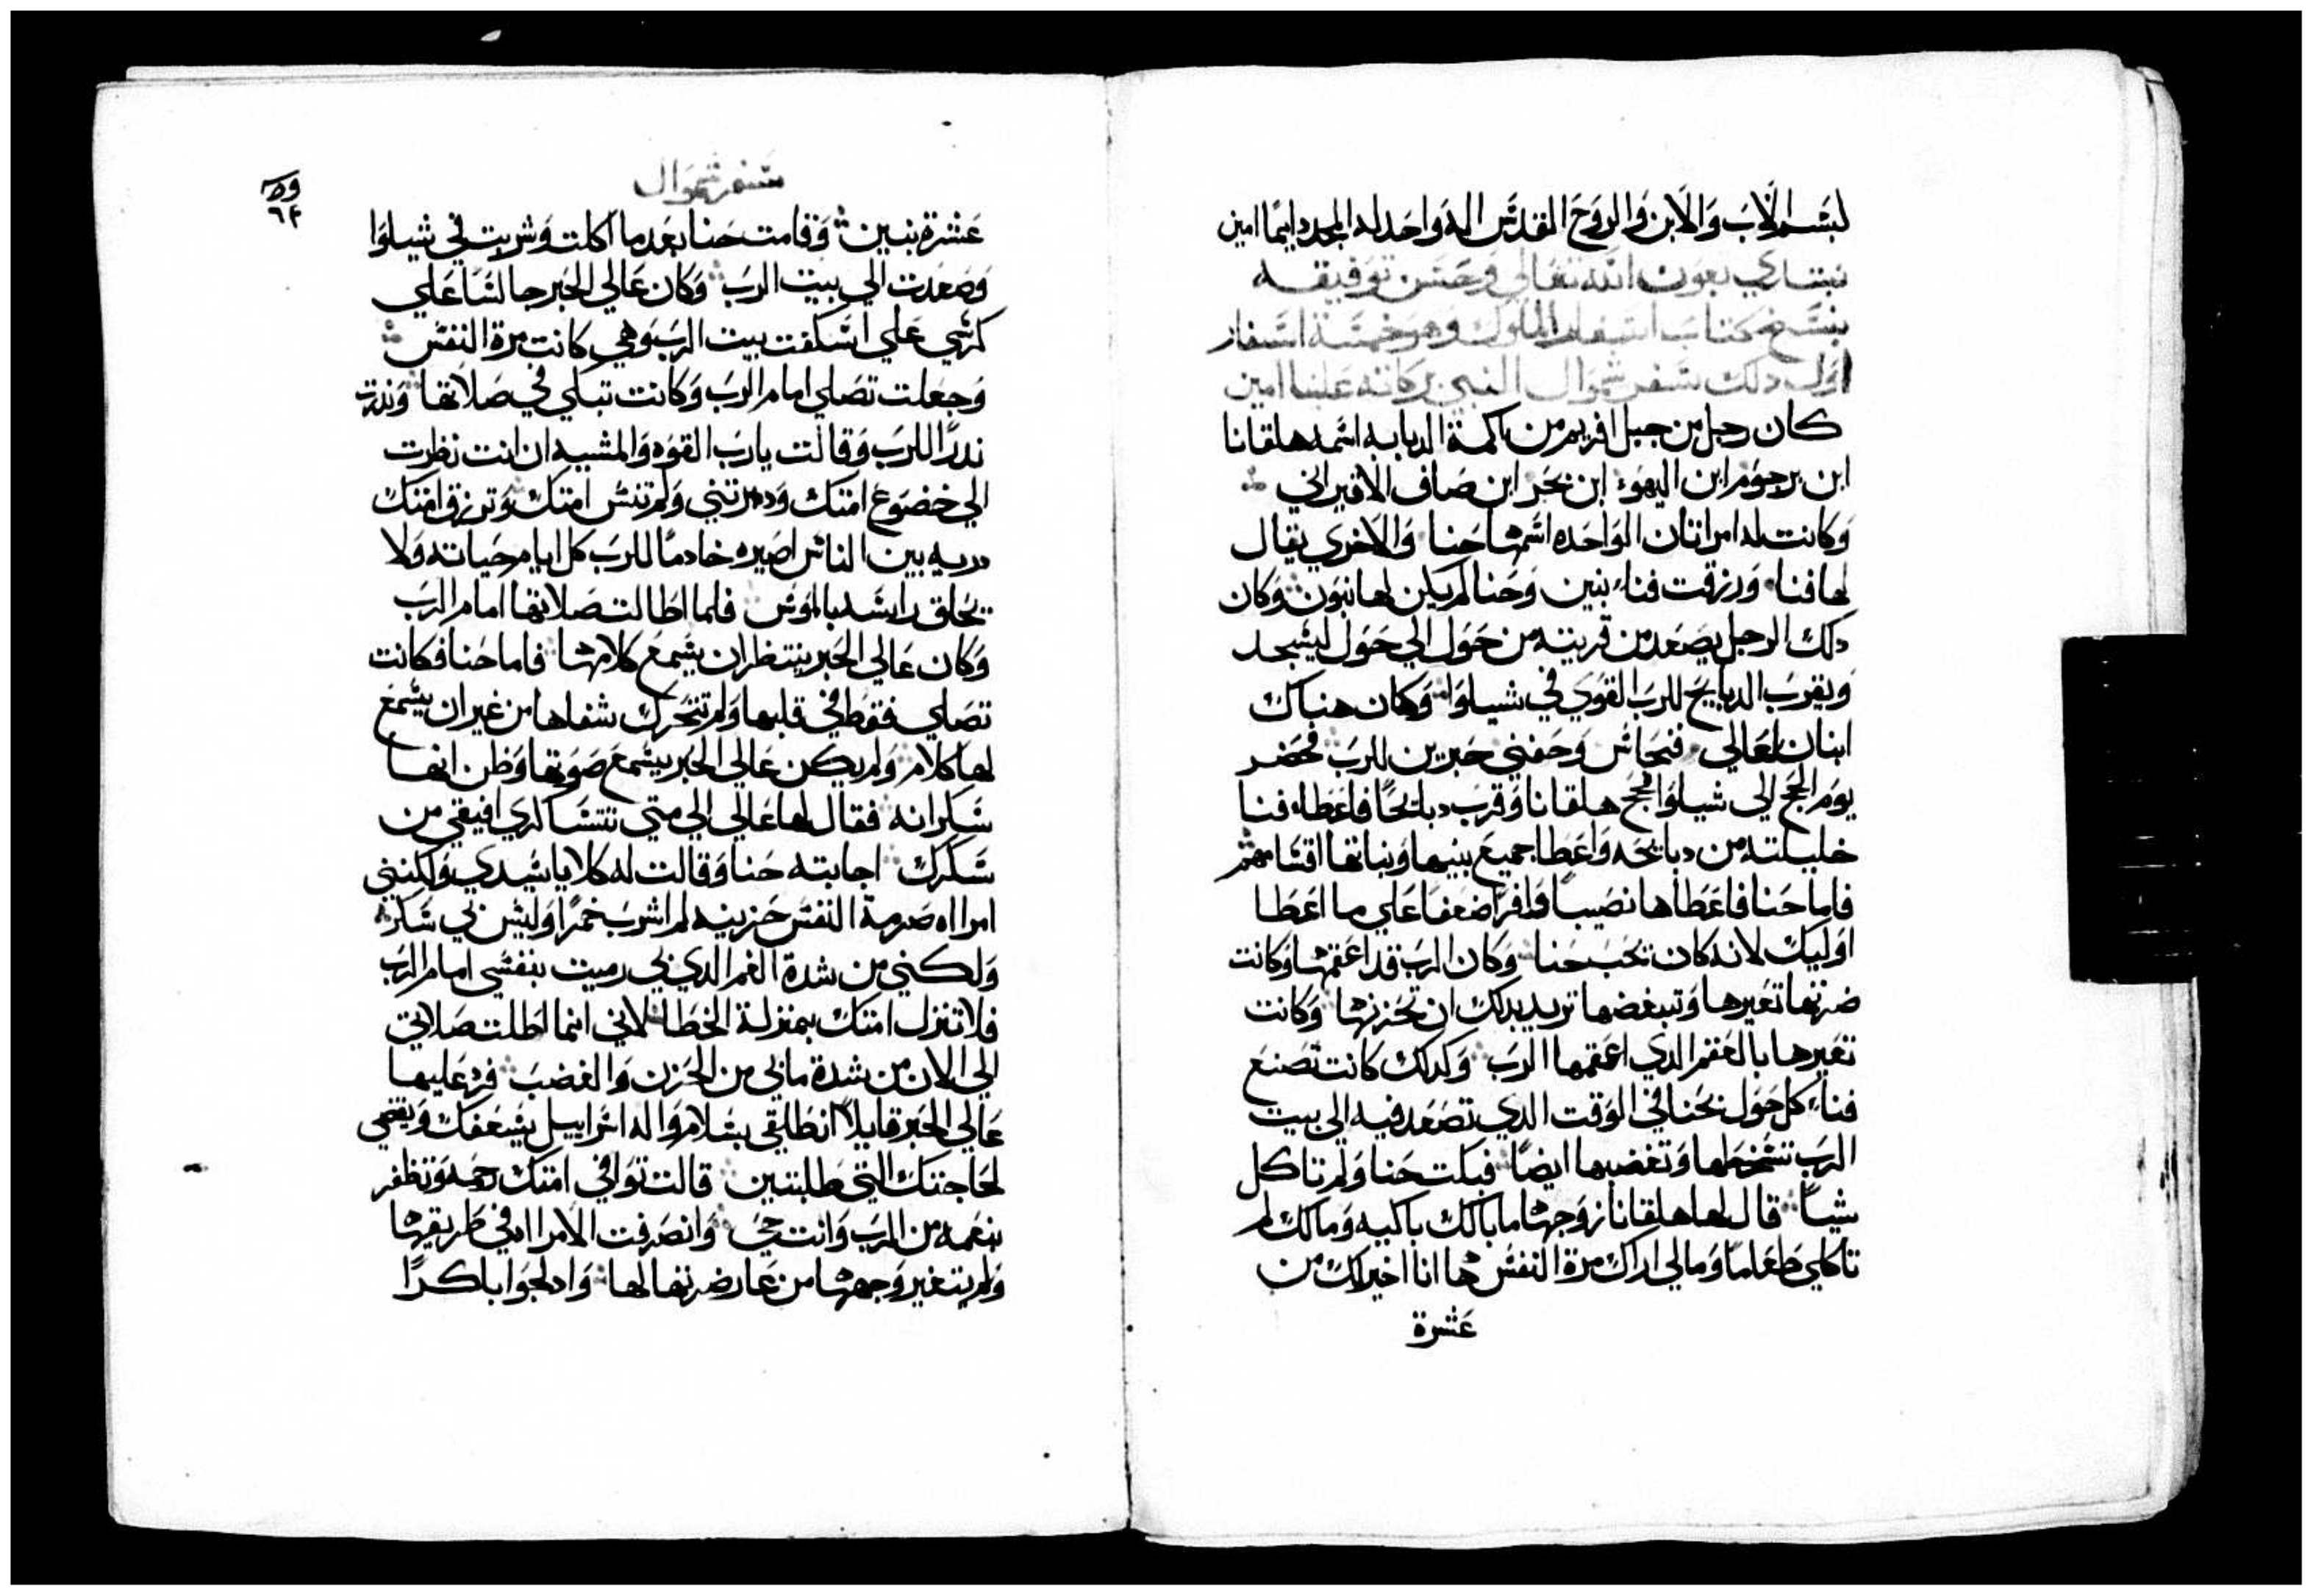 بسم الاب والابن والروح المقدس اله واحد له المجد دايمًا امين
نبتدي بعون الله تعالي وحسن توفيقه
بنسخ كتاب اسفار الملوك وهو خمسة اسفار
اول دلك سفر شموال النبي بركاته علينا امين
كان رجل من جبل افريم من اكمة الديابه اسمه هلقانا
ابن يرحوم ابن اليهوء ابن نحر ابن صاف الافيراني
وكانت له امراتان الواحده اسمها حنا والاخري يقال
لها فنا ورزقت فناء بنين وحنا لم يكن لها بنون وكان
دلك الرجل يصعد من قريته من حول الي حول ليسجد
ويقرب الدبايح للرب القوي في شيلوا وكان هناك
ابنان لعالي فنحاس وحفني حبرين للرب فحضر
يوم الحج الي شيلوا فحج هلقانا وقرب دبايحًا فاعطاء فنا
خليلته من دبايحه واعطا جميع بنيها وبناتها اقسامهم
فاما حنا فاعطاها نصيبًا وافرًا ضعفا علي ما اعطا
اوليك لانه كان يحب حنا وكان الرب قد اعقمها وكانت
ضرتها تعيرها وتبغضها تريد بدلك ان تحزنها وكانت
تعيرها بالعقم الدي اعقمها الرب وكدلك كانت تصنع
فناء كل حول بحنا في الوقت الدي تصعد فيه الي بيت
الرب تسخطها وتغضبها ايضًا فبكت حنا ولم تاكل
شيًا قال لها هلقانا زوجها ما بالك باكيه ومالك لم
تاكلي طعامًا ومالي اراك مرة النفس ها انا اخير لك من
عشرة
سفر شموال
عشرة بنين وقامت حنا بعد ما اكلت وشربت في شيلوا
وصعدت الي بيت الرب وكان عالي الحبر جالسًا علي
كرسي علي اسكفت بيت الرب وهي كانت مرة النفس
وجعلت تصلي امام الرب وكانت تبكي في صلاتها وندرت
ندرًا للرب وقالت يارب القوه والمشيه ان انت نظرت
الي خضوع امتك ودكرتني ولم تنس امتك وترزق امتك
دريه بين الناس اصيره خادمًا للرب كل ايام حياته ولا
يحلق راسه بالموس فلما اطالت صلاتها امام الرب
وكان عالي الحبر ينتظر ان يسمع كلامها فاما حنا فكانت
تصلي فقط في قلبها ولم تتحرك شفاها من غير ان يسمع
لها كلام ولم يكن عالي الحبر يسمع صوتها وظن انها
سكرانه فقال لها عالي الي متي تتساكري افيقي من
سكرك اجابته حنا وقالت له كلا يا سيدي ولكنني
امراه صرمة النفس حزينه لم اشرب خمرًا وليس بي سكره
ولكني من شدة الغم الدي بي رميت بنفسي امام الرب
فلا تنزل امتك بمنزلة الخطا لاني انما اطلت صلاتي
الي الان من شدة مابي من الحزن والغضب فرد عليها
عالي الحبر قايلاً انطلقي بسلام واله اسراييل يسعفك ويقضي
لحاجتك التي طلبتين قالت توافي امتك رحمه وتظفر
بنعمه من الرب وانت حي وانصرفت الامراه في طريقها
ولم يتغير وجهها من عارضرتها لها وادلجوا باكرًا